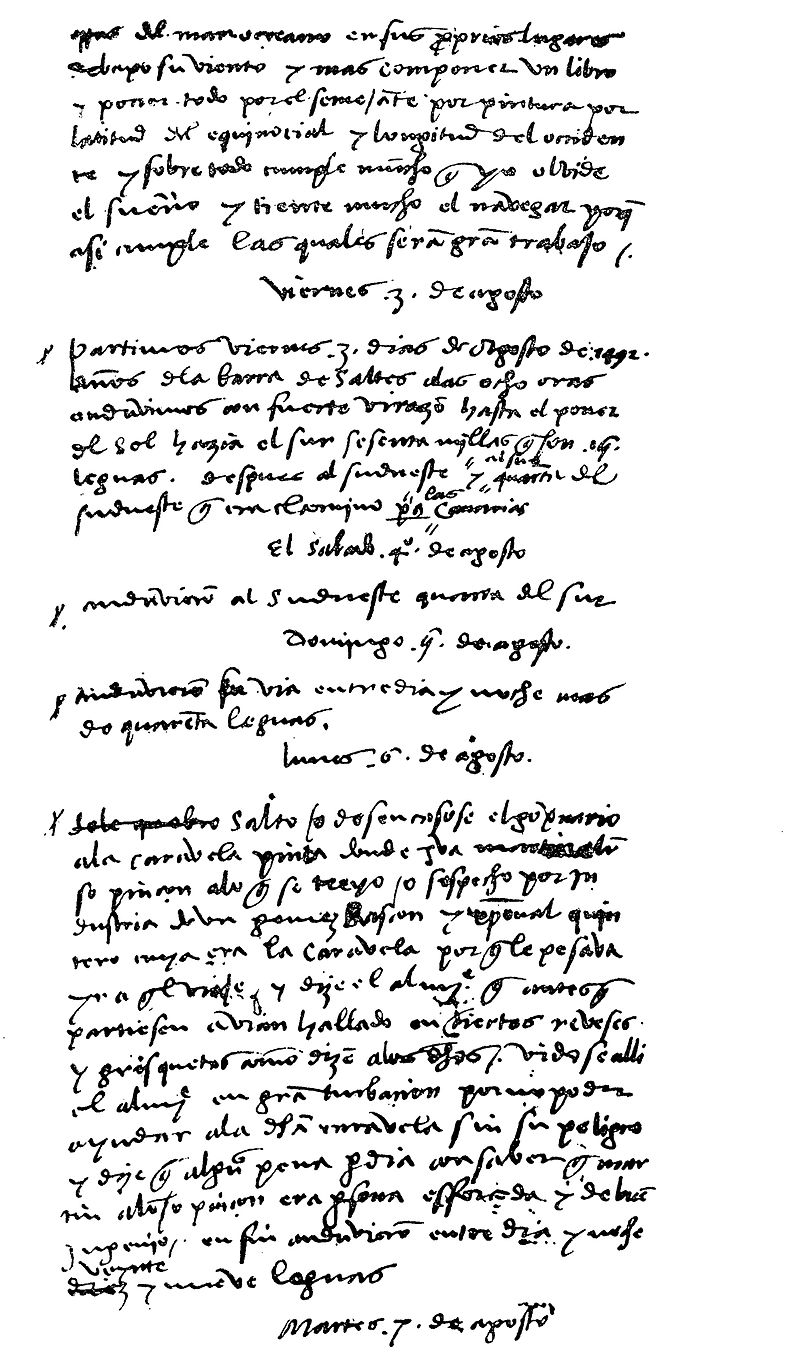 del mar oceano en sus proprios lugares
debaxo su viento y mas componer un libro
y poner todo por el semejante por pintura por
latitud del equinocial y longitud del occiden
te y sobre todo cumple mucho q̃ yo olvide
el sueño y tiente mucho el navegar porq̃
asi cumple las quales serã grã trabajo /.
viernes .3. de agosto
partimos viernes .3. dias de agosto de .1492.
años dla barra de Saltes alas ocho oras
anduvimos con fuerte virazõ hasta el poner
del Sol hazia el sur sesenta millas q̃ son .15.
leguas. despues al sudueste y al sur quarta del
sudueste q̃ era el camino pª las Canarias
El Sabado .4º. de agosto
anduvierõ al Sudueste quarta del sur
Domingo .5. de agosto.
anduvierõ su via entre dia y noche mas
de quarẽta leguas.
lunes .6. de agosto.
Salto /o desencasose el govername
ala caravela pinta donde yva martin alõ
so pinçon alo q̃ se creyo /o sospecho por in
dustria de un gomez Rascon y xpoval quin
tero cuya era la Caravela por q̃ le pesava
yr a ql viaje / y dize el almiᵉ q̃ antes q̃
partiesen avian hallado en ciertos reveses
y grisquetas como dizẽ alos dhos /. vidose alli
el almiᵉ en grã turbacion por no poder
ayudar ala dha caravela sin su peligro
y dize q̃ algũa pena perdia con saber q̃ mar
tin alõso pinçon era psona esforçada y de buẽ
ingenio / en fin anduvierõ entre dia y noche
veynte
y nueve leguas
Martes .7. de agosto